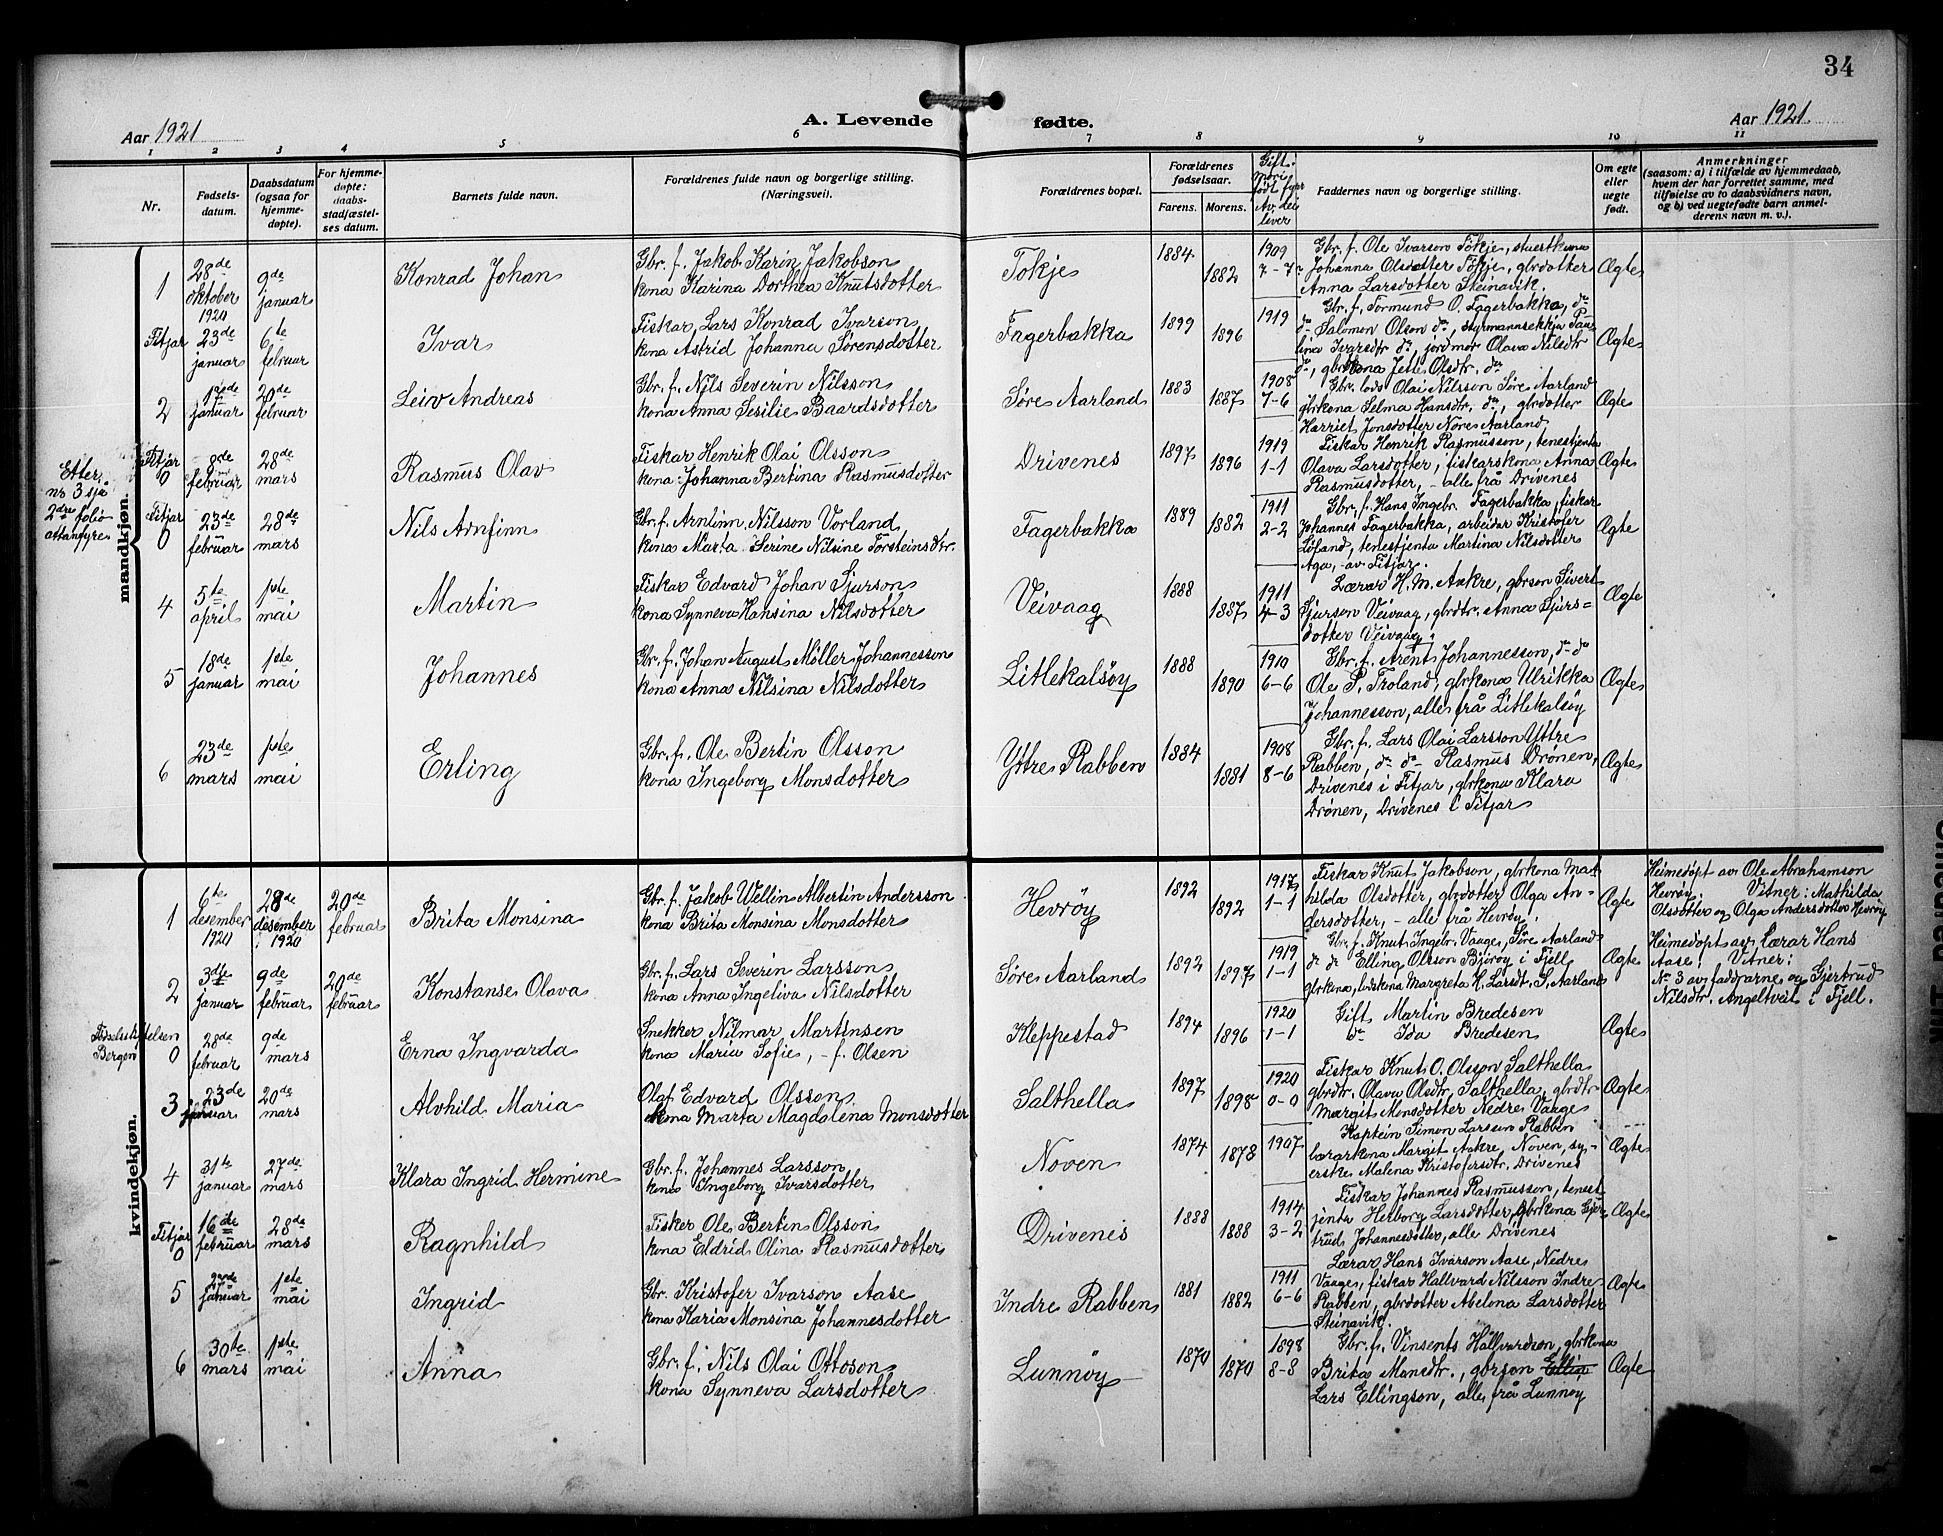 34
Aar 1921
A. Levende fødte.
Aar 1921.
1 2 3 4 5 6 7 8 9 10 11
Nr.
Fødsels-
datum.
Daabsdatum
(ogsaa for
hjemme-
døpte).
For hjemme-
døpte:
daabs-
stadfæstel-
ses datum.
Barnets fulde navn.
Forældrenes fulde navn og borgerlige stilling.
(Næringsvei).
Forældrenes bopæl.
Forældrenes
fødselsaar.
Farens. Morens.
Gift.
Faddernes navn og borgerlige stilling.
Om egte
eller
uegte
født.
Anmerkninger
(saasom: a) i tilfælde av hjemmedaab,
hvem der har forrettet samme, med
tilføielse av to daabsvidners navn,
og b) ved uegtefødte barn anmel-
derens navn m. v.).
mandkjøn.
1
28de
oktober
1920
9de
januar
Konrad Johan
Gbr. f. Jakob Karin Jakobson
kona Karina Dorthea Knutsdotter
Tökje
1884
1882
1909
7-7
Gbr. f. Ole Ivarson Tökje, stuertkona
Johanna Olsdotter Tökje, gbrdotter
Anna Larsdotter Steinavik.
Ægte
Fitjar
23de
januar
6te
februar
Ivar
Fiskar Lars Konrad Ivarson
kona Astrid Johanna Sörensdotter
Fagerbakka
1899
1896
1919
Gbr. f. Tormund O. Fagerbakka, do
do Salomon Olson do, styrmannsekkja Pau-
lina Ivarsdtr do, jordmor Olava Nilsdtr
do, gbrkona Jette Olsdtr. do
Ægte
2
17de
januar
20de
februar
Leiv Andreas
Gbr. f. Nils Severin Nilsson
kona Anna Sesilie Baardsdotter
Söre Aarland
1883
1887
1908
7-6
Gbr. lods Olai Nilsson Söre Aarland
gbrkona Selma Hansdtr. do, gbrdotter
Harriet Jonsdotter Nöre Aarland
Ægte
Etter
nr 3 sjå
2dre folio
attanfyre
Fitjar
0
8de
februar
28de
mars
Rasmus Olav
Fiskar Henrik Olai Olsson
kona: Johanna Bertina Rasmusdotter
Drivenes
1897
1896
1919
1-1
Fiskar Henrik Rasmusson, tenestjenta
Olava Larsdotter, fiskarskona Anna
Rasmusdotter, - alle frå Drivenes
Ægte
Fitjar
0
23de
februar
28de
mars
Nils Arnfinn
Gbr. f. Arnfinn Nilsson Vorland
kona Marta Serine Nilsine Torsteinsdtr.
Fagerbakka
1889
1882
1911
2-2
Gbr. f. Hans Ingebr. Fagerbakka, fiskar
Johannes Fagerbakka, arbeidar Kristofer
Löfand, tenestjenta Martina Nilsdotter
Aga, - av Fitjar.
Ægte
4
5te
april
1ste
mai
Martin
Fiskar Edvard Johan Sjurson
kona Synneva Hansina Nilsdotter
Veivaag
1888
1887
1911
4-3
Lærar H. M. Aakre, gbrson Sivert
Sjurson Veivaag, gbrdtr. Anna Sjurs-
dotter Veivaag.
Ægte
5
18de
januar
1ste
mai
Johannes
Gbr. f. Johan August Möller Johannesson
kona Anna Nilsina Nilsdotter
Litlekalsöy
1888
1890
1910
6-6
Gbr. f. Arent Johannesson, do do
Ole P. Troland, gbrkona Ulrikka
Johannesson, alle frå Litlekalsöy
Ægte
6
23de
mars
1ste
mai
Erling
Gbr. f. Ole Bertin Olsson
kona Ingeborg Monsdotter
Yttre Rabben
1884
1881
1908
8-6
Gbr. f. Lars Olai Larsson Yttre
Rabben, do do Rasmus Drönen,
Drivenes i Fitjar, gbrkona Klara
Drönen, Drivenes i Fitjar
Ægte
kvindekjøn.
1
6te
desember
1920
28de
desember
1920
20de
februar
Brita Monsina
Gbr. f. Jakob Wellin Albertin Andersson
kona Brita Monsina Monsdotter
Hevröy
1892
1892
1917
1-1
Fiskar Knut Jakobson, gbrkona Mat-
hilda Olsdotter, gbrdotter Olga An-
dersdotter, - alle frå Hevröy.
Ægte
Heimedöpt av Ole Abrahamson
Hevröy. Vitner: Mathilda
Olsdotter og Olga Andersdotter Hevröy
2
3dje
januar
9de
februar
20de
februar
Konstanse Olava
Gbr. f. Lars Severin Larsson
kona Anna Ingeliva Nilsdotter
Söre Aarland
1892
1897
1919
1-1
Gbr. f. Knut Ingebr. Vaage, Söre Aarland
do do Elling Olsson Björöy i Fjell
gbrkona, lodskona Margreta H. Larsdt. S. Aarland
Ægte
Heimedöpt av Lærar Hans
Aase. Vitner:
No 3 av faddrarne, og Gjertrud
Nilsdtr. Angeltveit i Fjell.
Födselsstiftelsen
Bergen
0
28de
februar
9de
mars
Erna Ingvarda
Snekker Nilmar Martinsen
kona Maria Sofie, - f. Olsen
Kleppestad
1894
1896
1920
1-1
Gift Martin Bredesen
do Ida Bredesen
Ægte
3
23de
januar
20de
mars
Alvhild Maria
Olaf Edvard Olsson
kona Marta Magdalena Monsdotter
Salthella
1897
1898
1920
0-0
Fiskar Knut O. Olsson Salthella
gbrdtr. Olava Olsdtr. Salthella, gbrdtr
Margit Monsdotter Nedre Vaage
Ægte
4
31te
januar
27de
mars
Klara Ingrid Hermine
Gbr. f. Johannes Larsson
kona Ingeborg Ivarsdotter
Noven
1874
1878
1907
Kaptein Simon Larsson Rabben
lærarkona Margit Aakre, Noven, sy-
erske Malena Kristofersdtr. Drivenes
Ægte
Fitjar
0
16de
februar
28de
mars
Ragnhild
Fisker Ole Bertin Olsson
kona Eldrid Olina Rasmusdotter
Drivenes
1888
1888
1914
3-2
Fiskar Johannes Rasmusson, tenest-
jenta Herborg Larsdotter, gbrkona Gjer-
trud Johannesdotter, alle Drivenes
Ægte
5
januar
1ste
mai
Ingrid
Gbr. Kristofer Ivarson Aase
kona Karia Monsina Johannesdotter
Indre Rabben
1881
1882
1911
6-6
Lærar Hans Ivarson Aase, Nedre
Vaage, fiskar Hallvard Nilsson Indre
Rabben, gbrdotter Abelona Larsdotter
Steinavik.
Ægte
6
30te
mars
1ste
mai
Anna
Gbr. f. Nils Olai Ottoson
kona Synneva Larsdotter
Lunnöy
1870
1870
1898
8-8
Gbr. f. Vinsents Hallvardson, gbrkona
Brita Monsdtr., gbrson Ellin
Lars Ellingson, alle frå Lunnöy
Ægte